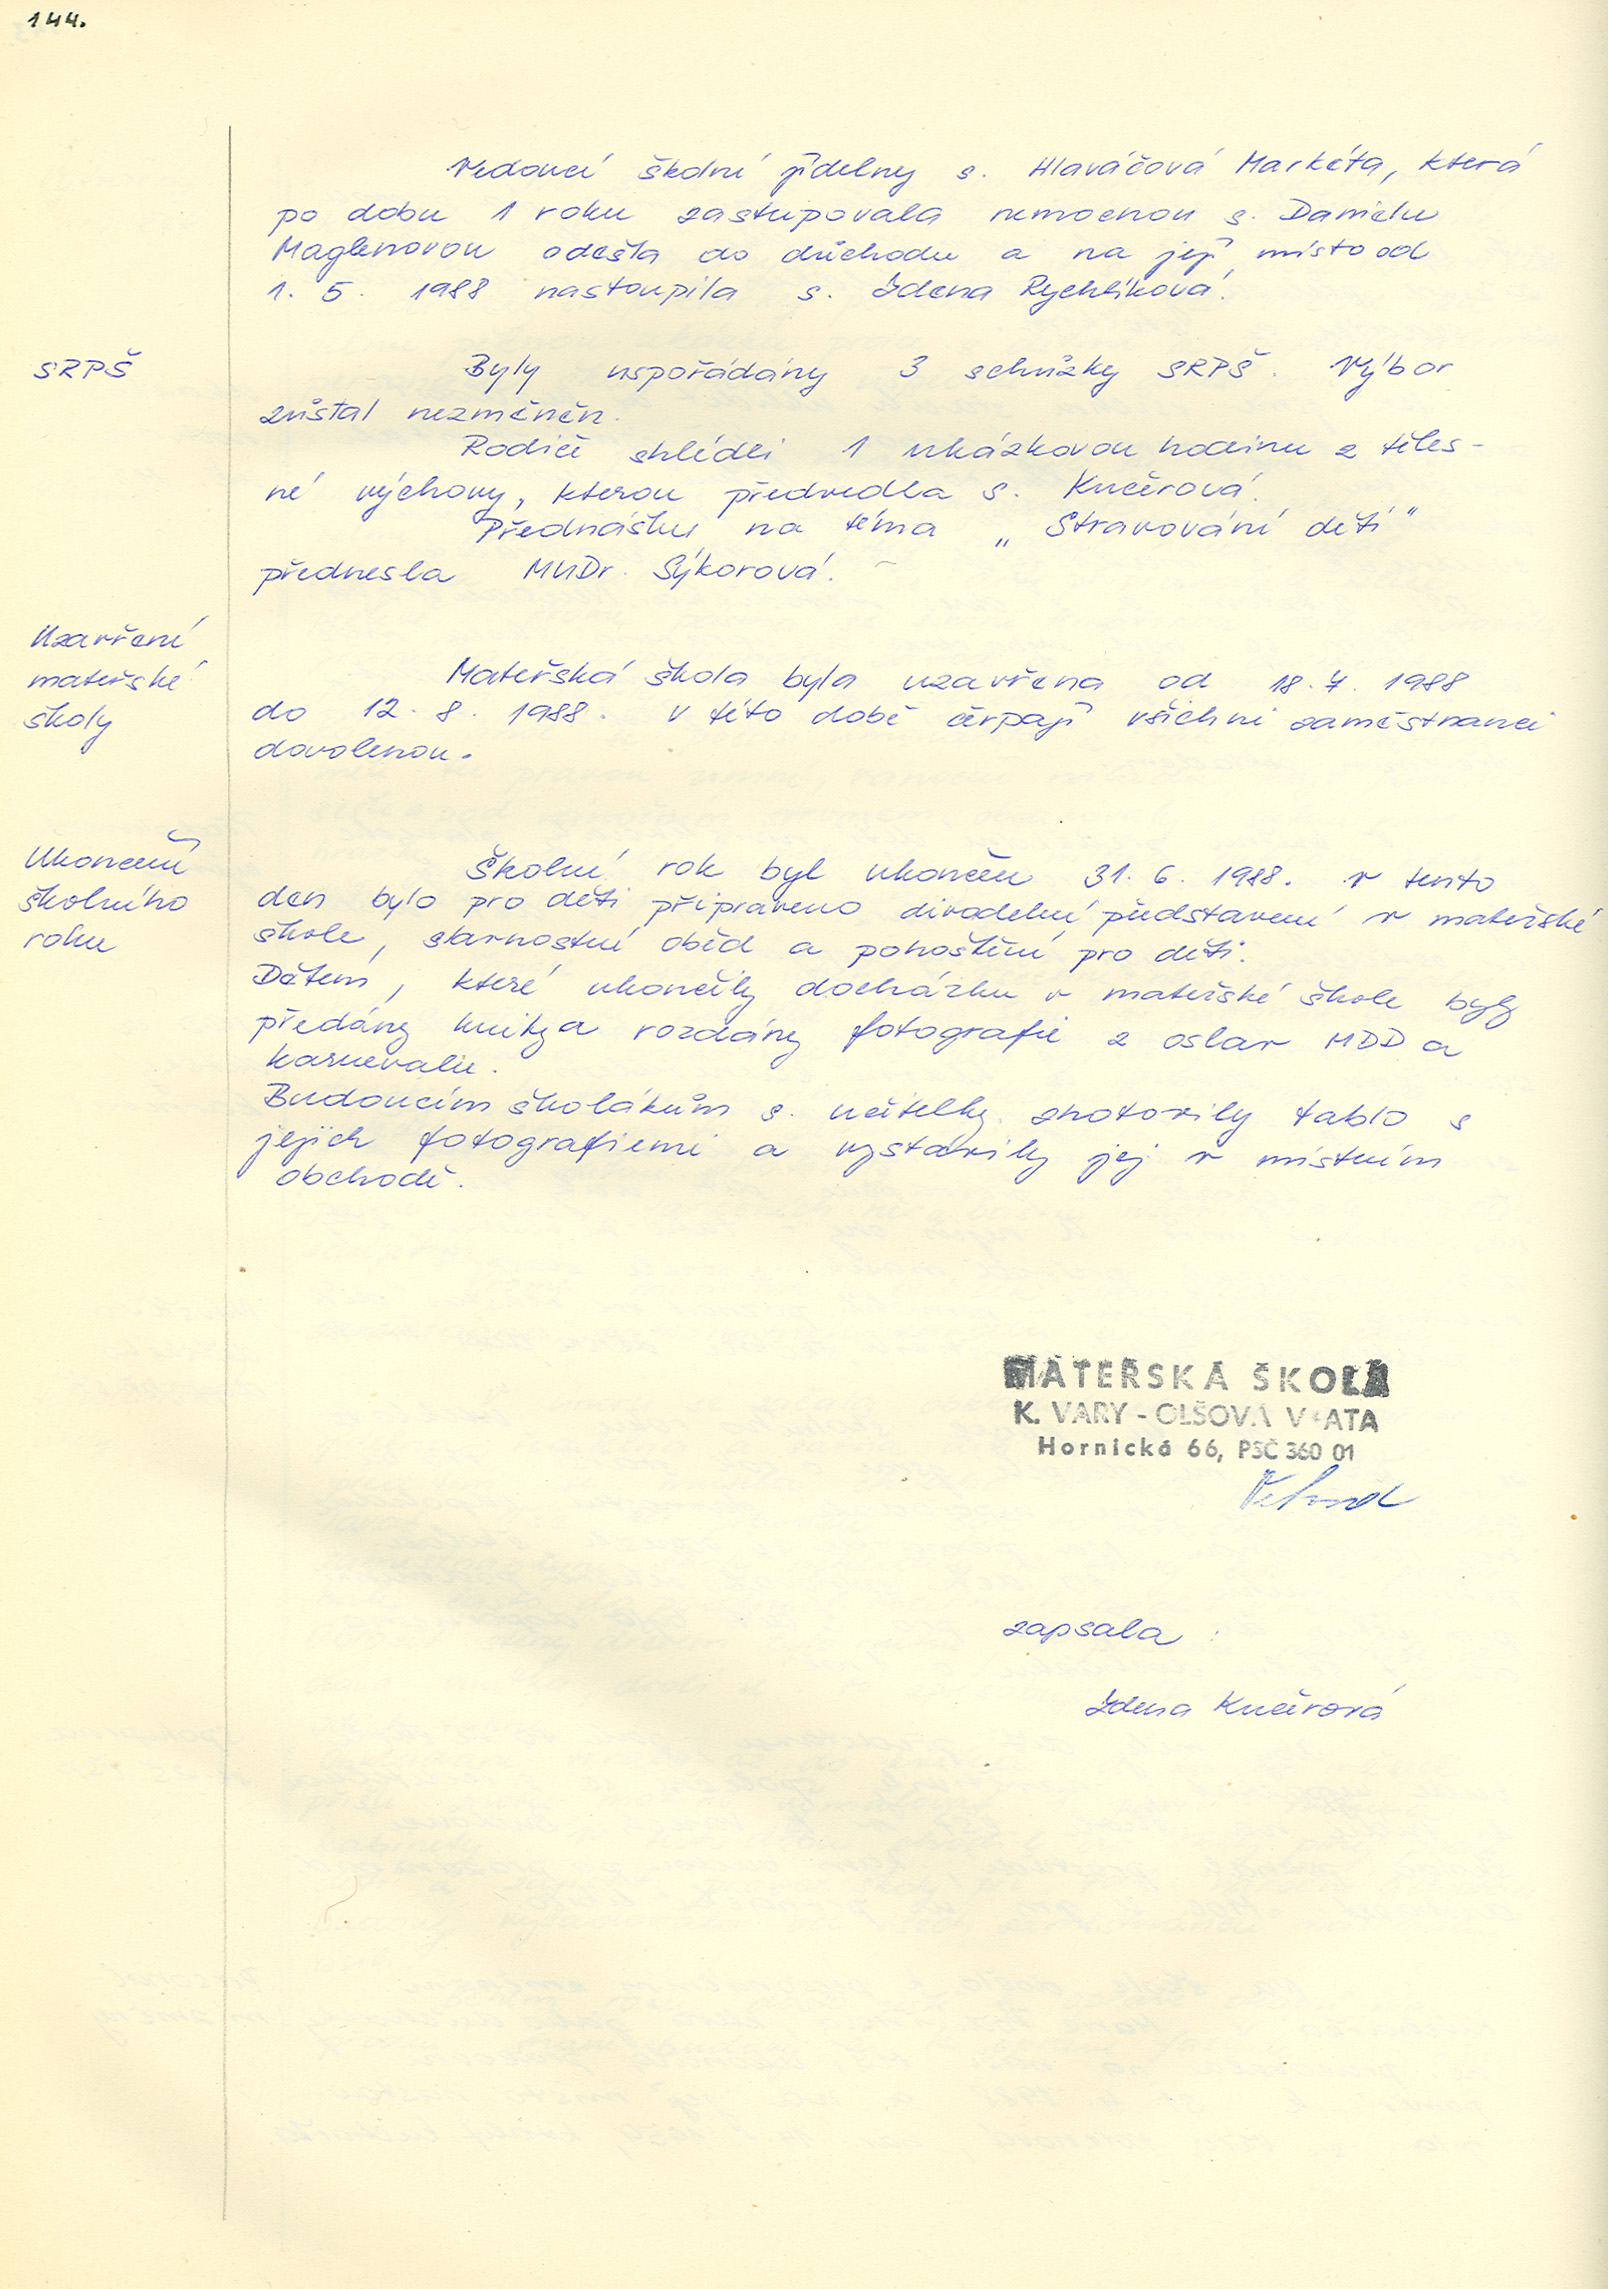 144.
Vedoucí školní jídelny s. Hlaváčová Markéta, která
po dobu 1 roku zastupovala nemocnou s. Danielu
Maglenovou odešla do důchodu a na její místo od
1. 5. 1988 nastoupila s. Zdena Rychlíková.
SRPŠ
Byly uspořádány 3 schůzky SRPŠ. Výbor
zůstal nezměněn.
Rodiče shlédli 1 ukázkovou hodinu z těles-
né výchovy, kterou předvedla s. Kučerová.
Přednášku na téma „Stravování dětí"
přednesla MUDr. Sýkorová.
Uzavření
mateřské
školy
Mateřská škola byla uzavřena od 18. 7. 1988
do 12. 8. 1988. V této době čerpají všichni zaměstnanci
dovolenou.
Ukončení
školního
roku
Školní rok byl ukončen 31. 6. 1988. V tento
den bylo pro děti připraveno divadelní představení v mateřské
škole, slavnostní oběd a pohoštění pro děti.
Dětem, které ukončily docházku v mateřské škole byly
předány knihy a rozdány fotografie z oslav MDD a
karnevalu.
Budoucím školákům s. učitelky zhotovily tablo s
jejich fotografiemi a vystavily jej v místním
obchodě.
MATEŘSKÁ ŠKOLA
K. VARY - OLŠOVÁ VRATA
Hornická 66, PSČ 360 01
zapsala :
Zdena Kučerová